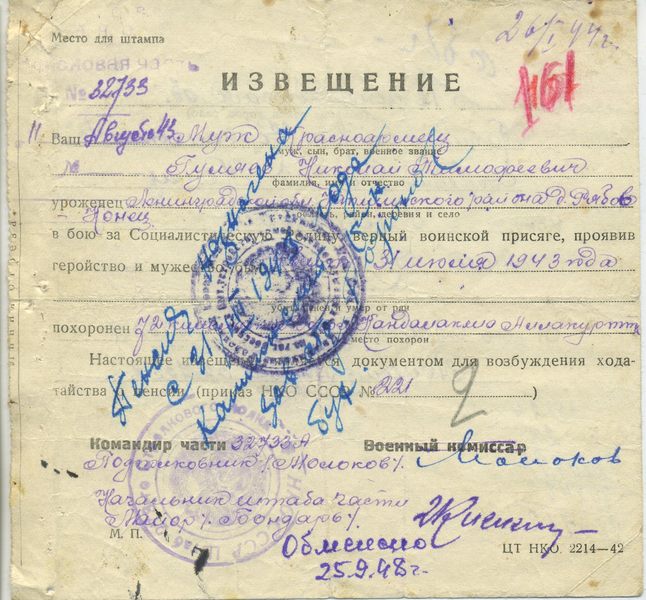 Место для штампа
20/I 44г.
№ 32733
ИЗВЕЩЕНИЕ
1151
11 Августа 43
Ваш Муж Красноармеец
муж, сын, брат, военное звание
Гуляев Николай Тимофеевич
фамилия, имя и отчество
уроженец Ленинградской обл. района д. Рябов-
Конец
область, район, деревня и село
в бою за Социалистическую Родину, верный воинской присяге, проявив
геройство и мужество, 31 июля 1943 года
убит, ранен и умер от ран
похоронен 72 Кандалакша Алакуртти
место похорон
Настоящее извещение является документом для возбуждения хода-
тайства о пенсии (приказ НКО СССР № 221 )
Пенсия назначена
с 31/ 1943 года
2
Командир части 32733А Военный комиссар
Подполковник /Молоков/. Молоков
Начальник штаба части
Майор /. Бондарь/.
М. П.
Обменено
25.9.48г.
ЦТ НКО. 2214—42